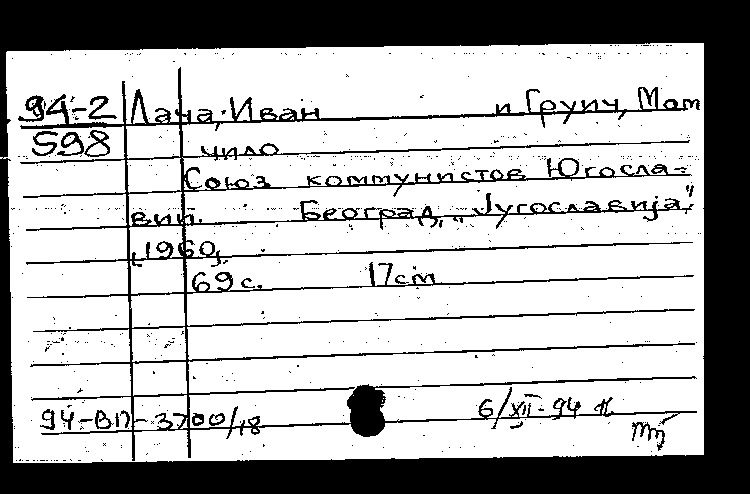 94-2 Лача, Иван и Груич, Мом
598 чило
Союз коммунистов Югосла=
вии. Београд, „Југославија”
„1960„
69 с. 17cm
94-ВП-3700/18 6/XII-94